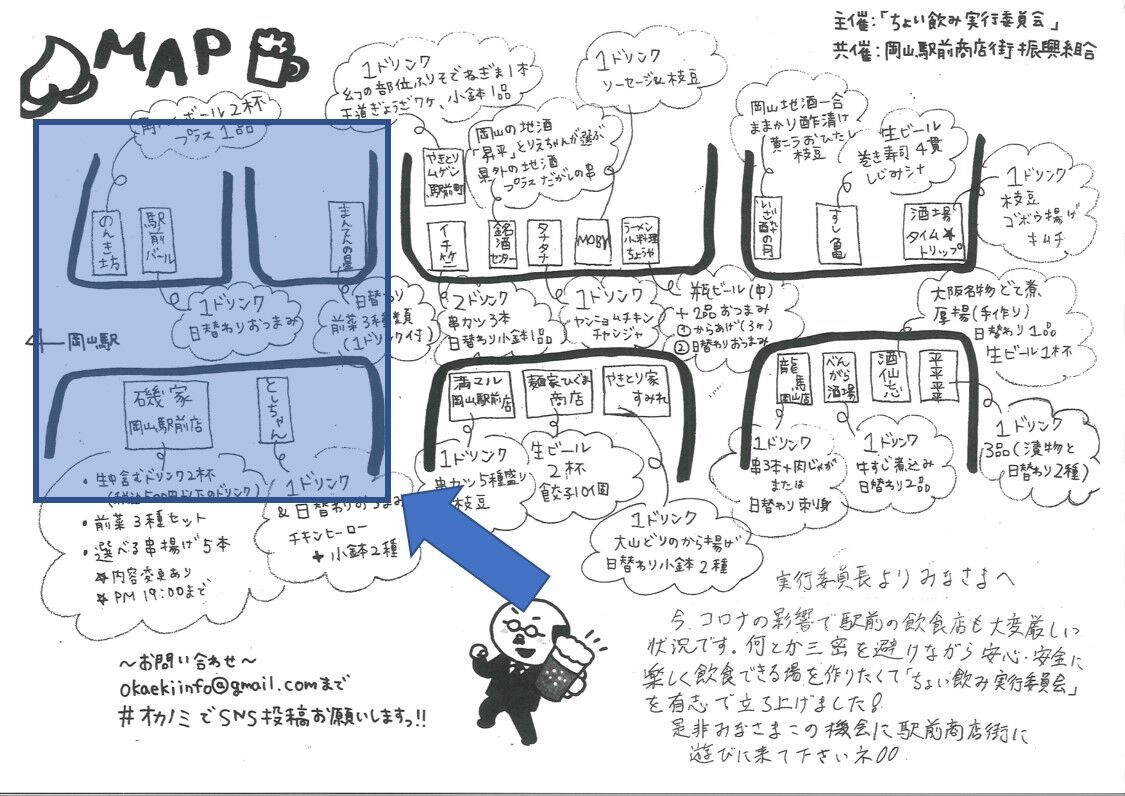 MAP
主催:「ちょい飲み実行委員会」
共催:岡山駅前商店街振興組合
ボール2杯
プラス1品
1ドリンク
幻の部位ふりそでねぎま1本
王道ぎょうざ7ヶ、小鉢1品
1ドリンク
ソーセージ&枝豆
岡山の地酒
「昇平」とりえちゃんが選ぶ
県外の地酒
プラスだがしの串
岡山地酒一合
ままかり酢漬け
黄ニラおひたし
枝豆
生ビール
巻き寿司4貫
しじみ汁
1ドリンク
枝豆
ゴボウ揚げ
キムチ
のんき坊
駅前バール
まんてんの星
やきとり
ムゲン
駅前町
イチケー
銘酒センター
タナタナ
MOBY
ラーメン
小料理
ちょうや
いざ酔の月
すし亀
酒場
タイム★
トリップ
1ドリンク
日替わりおつまみ
日替わり
前菜3種類
(1ドリンク付)
2ドリンク
串カツ3本
日替わり小鉢1品
1ドリンク
ヤンニョムチキン
チャンジャ
瓶ビール(中)
+2品おつまみ
①からあげ(3ヶ)
②日替わりおつまみ
大阪名物どて煮、
厚揚(手作り)
日替わり1品
生ビール1杯
岡山駅
磯家
岡山駅前店
としちゃん
満マル
岡山駅前店
麺家ひぐま
商店
やきとり家
すみれ
龍馬
岡山店
べんがら酒場
酒仙志
平平平
・生中含むドリンク2杯
(税込500円以下のドリンク)
・前菜3種セット
・選べる串揚げ5本
★内容変更あり
★PM 19:00まで
1ドリンク
&日替わりおつまみ
チキンヒーロー
+小鉢2種
1ドリンク
串カツ5種盛り
枝豆
生ビール
2杯
餃子10個
1ドリンク
大山どりのから揚げ
日替わり小鉢2種
1ドリンク
串3本+肉じゃが
または
日替わり刺身
1ドリンク
牛すじ煮込み
日替わり2品
1ドリンク
3品(漬物と
日替わり2種)
〜お問い合わせ〜
okaekiinfo@gmail.comまで
#オカノミでSNS投稿お願いしますっ!!
実行委員長よりみなさまへ
今、コロナの影響で駅前の飲食店も大変厳しい
状況です。何とか三密を避けながら安心・安全に
楽しく飲食できる場を作りたくて「ちょい飲み実行委員会」
を有志で立ち上げました!
是非みなさまこの機会に駅前商店街に
遊びに来て下さいネ